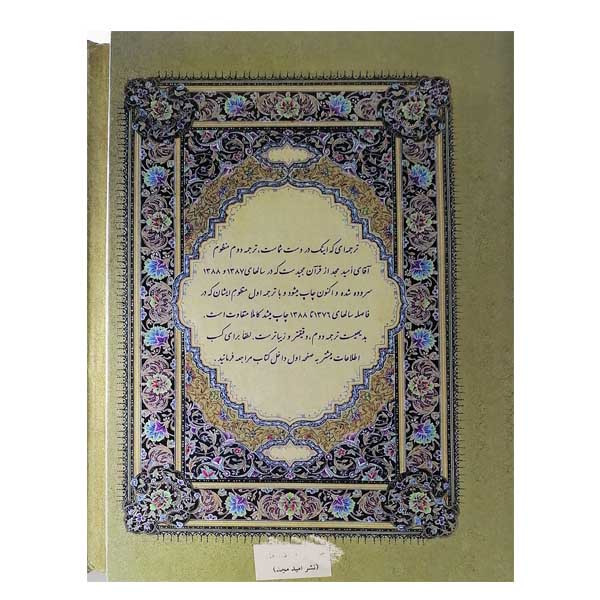 ترجمه‌ای که اینک در دست شماست، ترجمه دوم منظوم
آقای امید مجد از قرآن مجید ست که در سالهای ۱۳۸۷ و ۱۳۸۸
سروده شده و اکنون چاپ میشود و با ترجمه اول منظوم ایشان که در
فاصله سالهای ۱۳۷۶ تا ۱۳۸۸ چاپ میشد کاملا متفاوت است.
بدیهیست ترجمه دوم، دقیقتر و زیباتر ست. لطفا برای کسب
اطلاعات بیشتر به صفحه اول داخل کتاب مراجعه فرمائید.
(نشر امید مجد)